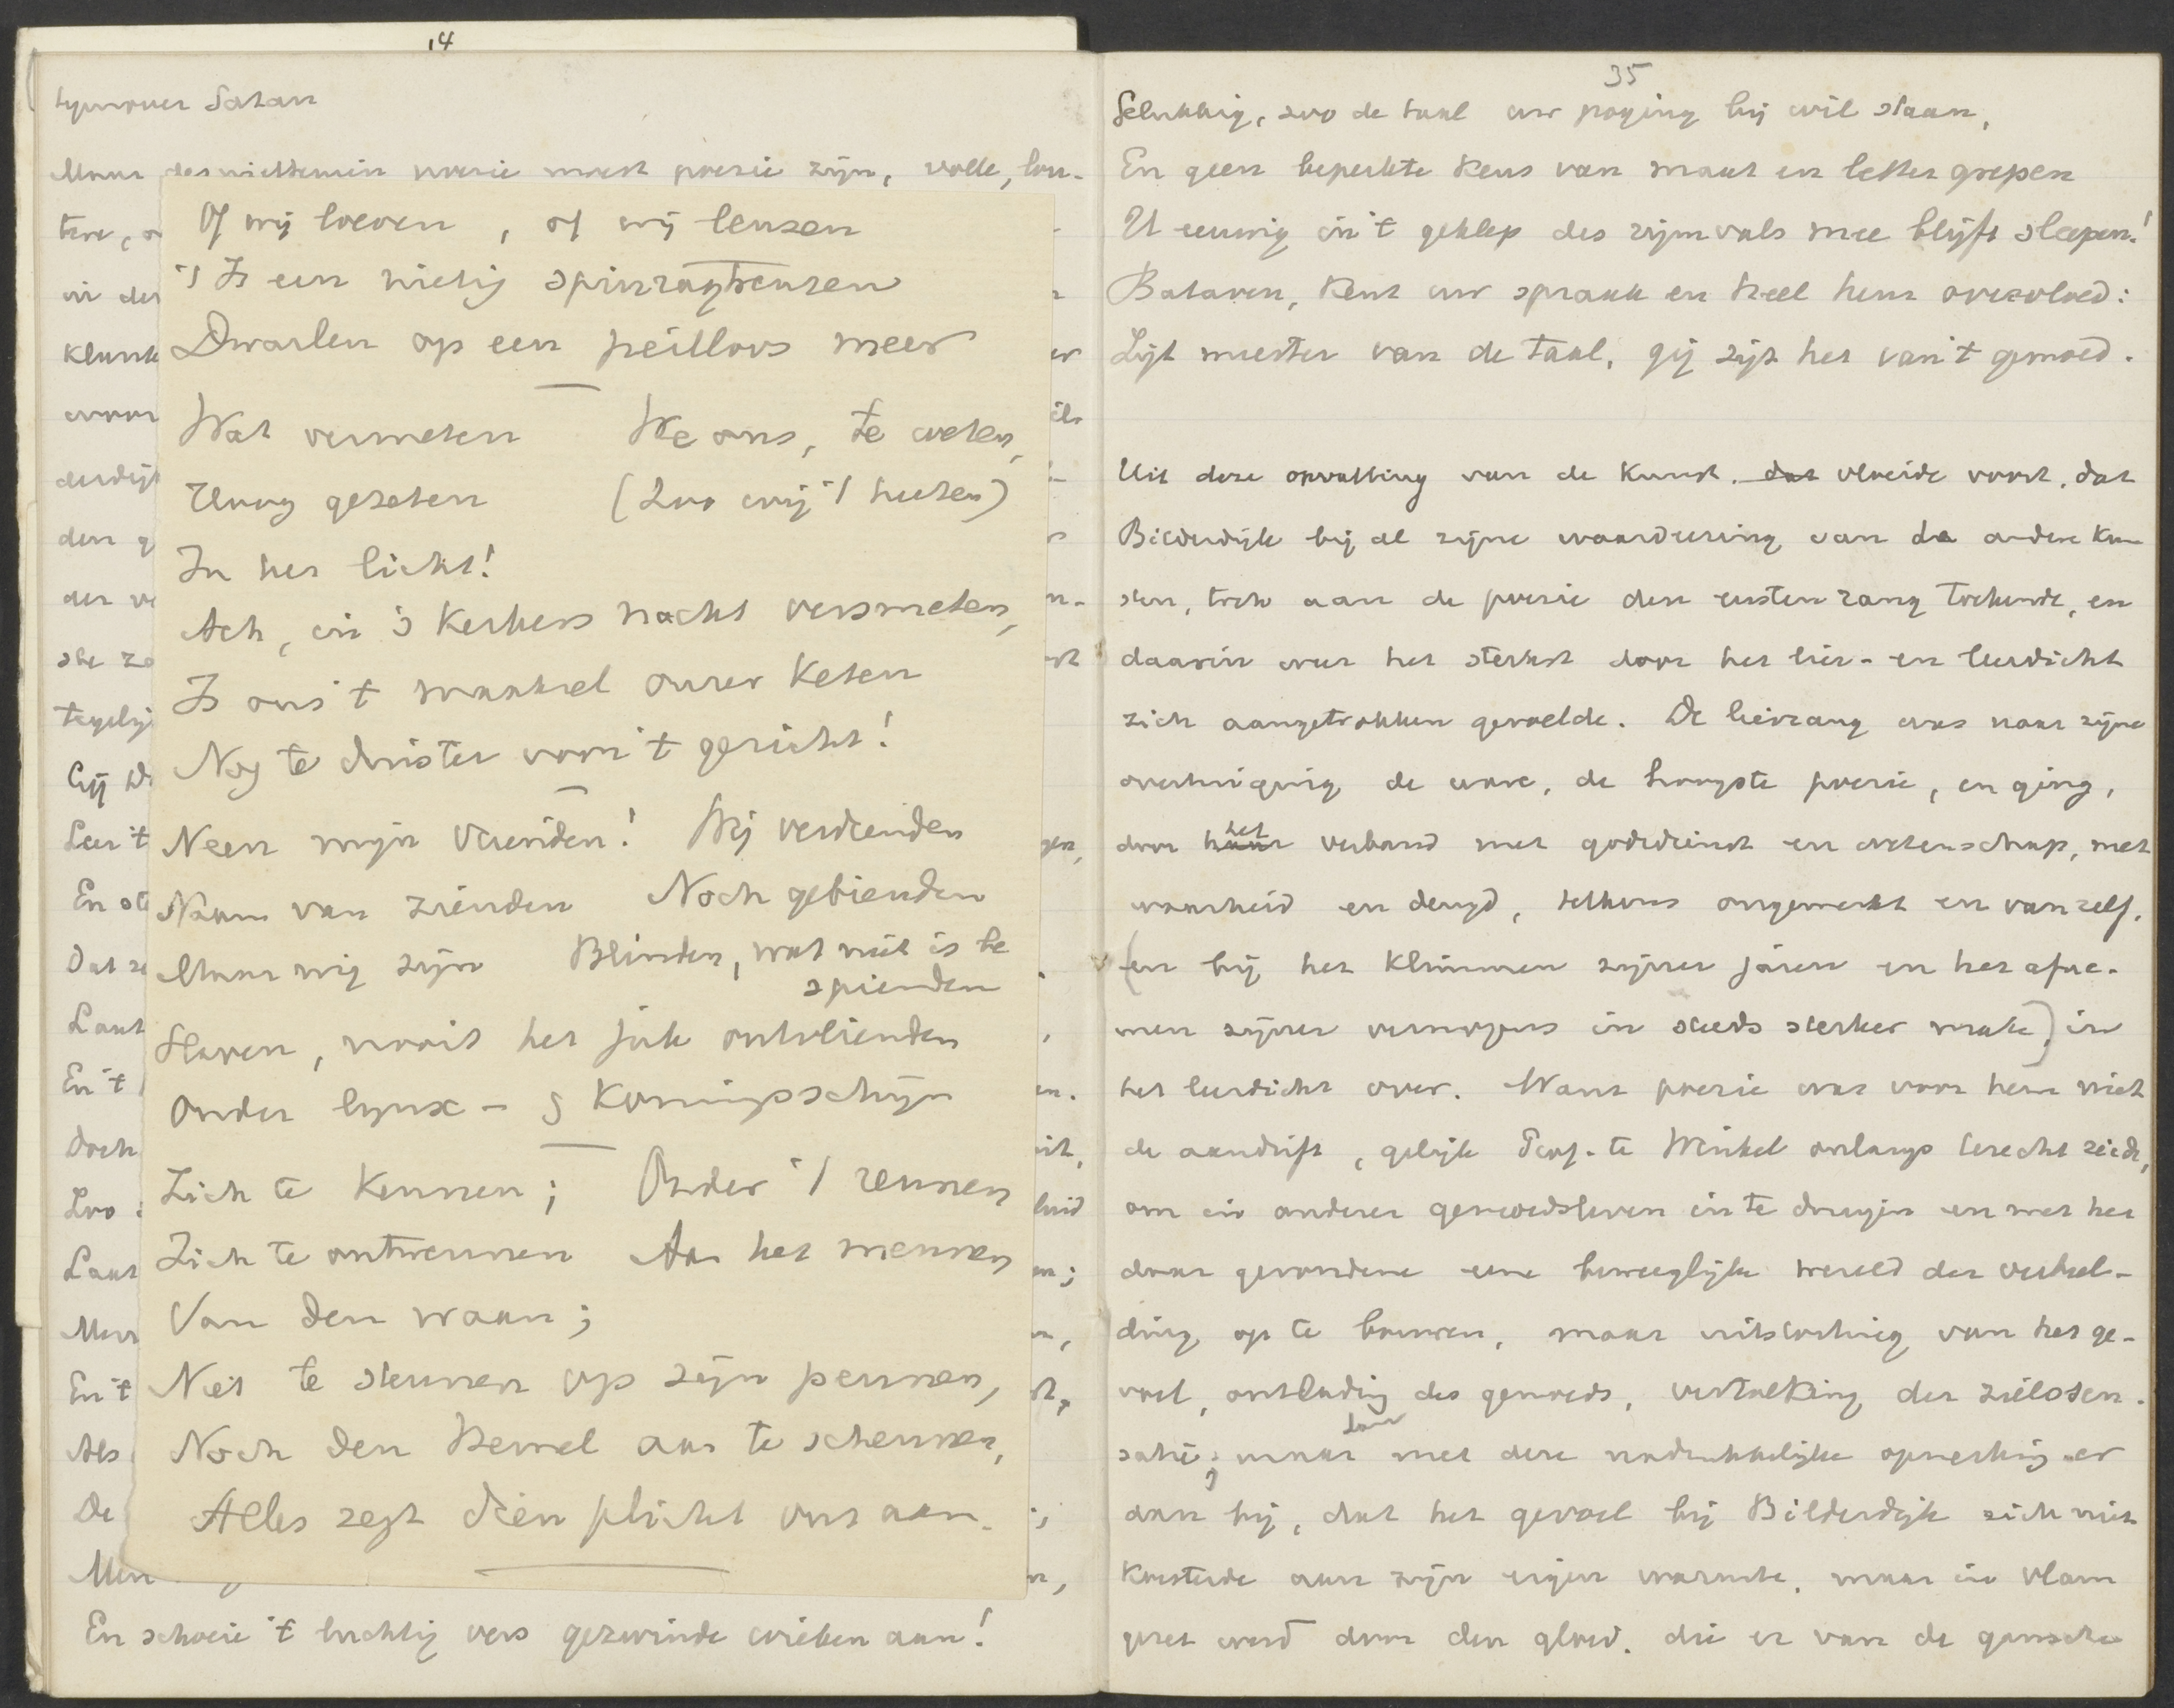 14
Satan
Maar desniettemin poesie moest poesie zijn, volle, lou-
tere,
in der
Klank
waar
derdijk
den g
der ve
ste zo
tegelij
Gij
Leer 't
En
Dat
Laat
En 't
Doch
Zoo
Laat
Men
En 't
Als
De
Men
En schoeie 't luchtig vers gezwinde wieken aan!
Of wij loeven, of wij leuzen
't Is een nietig spinragtreuzen
Dwarlen op een peilloos meer
Wat vermeten We ons, te weten,
Hoog gezeten (Zoo wij 't heeten)
In het licht!
Ach, in 's Kerkers nacht versmeten,
Is ons 't maaksel onzer Keten
Nog te duister voor 't gezicht!
Neen mijn Vrienden! Wij verdienden
Naam van zienden Noch gebienden
Maar wij zijn Blinden, wat niet is be
spienden
Slaven, nooit het juk ontvlienden
Onder lynx- & Koningsschijn
Zich te Kennen; Onder 't rennen
Zich te ontwennen Aan het mennen
Van den waan;
Niet te steunen op zijn pennen,
Noch den Hemel aan te schennen,
Alles zegt dien plicht ons aan.
35
Gelukkig, zoo de taal uw poging bij wil staan,
En geen beperkte Keus van maat en lettergrepen
U eeuwig in 't geklep des rijmvals mee blijft sleepen!
Bataven, Kent uw spraak en heel heur overvloed:
Zijt meester van de taal, gij zijt het van 't gemoed.
Uit deze opvatting van de Kunst, dat vloeide voort, dat
Bilderdijk bij al zijne waardeering van de andere Kun
sten, toch aan de poesie den eersten rang toekende, en
daarin weer het sterkst door het lier- en leerdicht
zich aangetrokken gevoelde. De lierzang was naar zijne
overtuiging de ware, de hoogste poesie, en ging,
door haar het verband met godsdienst en wetenschap, met
waarheid en deugd, telkens ongemerkt en vanzelf,
(en bij het Klimmen zijner jaren en het afne-
men zijner vermogens in steeds sterker mate,) in
het leerdicht over. Want poesie was voor hem niet
de aandrift, gelijk Prof. te Winkel onlangs terecht zeide,
om in anderer gemoedsleven in te dringen en met het
daar gevondene eene beweeglijke wereld der verbeel-
ding op te bouwen, maar uitstorting van het ge-
voel, ontlading des gemoeds, vertolking der zielssen-
satie; maar met deze nadrukkelijke opmerking er
dan bij, dat het gevoel bij Bilderdijk zich niet
Koesterde aan zijn eigen warmte, maar in vlam
gezet werd door den gloed, die er van de gansche